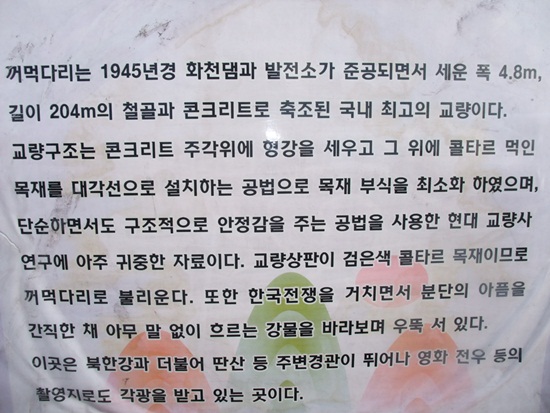 꺼먹다리는 1945년경 화천댐과 발전소가 준공되면서 세운 폭 4.8m,
길이 204m의 철골과 콘크리트로 축조된 국내 최고의 교량이다.
교량구조는 콘크리트 주각위에 형강을 세우고 그 위에 콜타르 먹인
목재를 대각선으로 설치하는 공법으로 목재 부식을 최소화 하였으며,
단순하면서도 구조적으로 안정감을 주는 공법을 사용한 현대 교량사
연구에 아주 귀중한 자료이다. 교량상판이 검은색 콜타르 목재이므로
꺼먹다리로 불리운다. 또한 한국전쟁을 거치면서 분단의 아픔을
간직한 채 아무 말 없이 흐르는 강물을 바라보며 우뚝 서 있다.
이곳은 북한강과 더불어 딴산 등 주변경관이 뛰어나 영화 전우 등의
촬영지로도 각광을 받고 있는 곳이다.